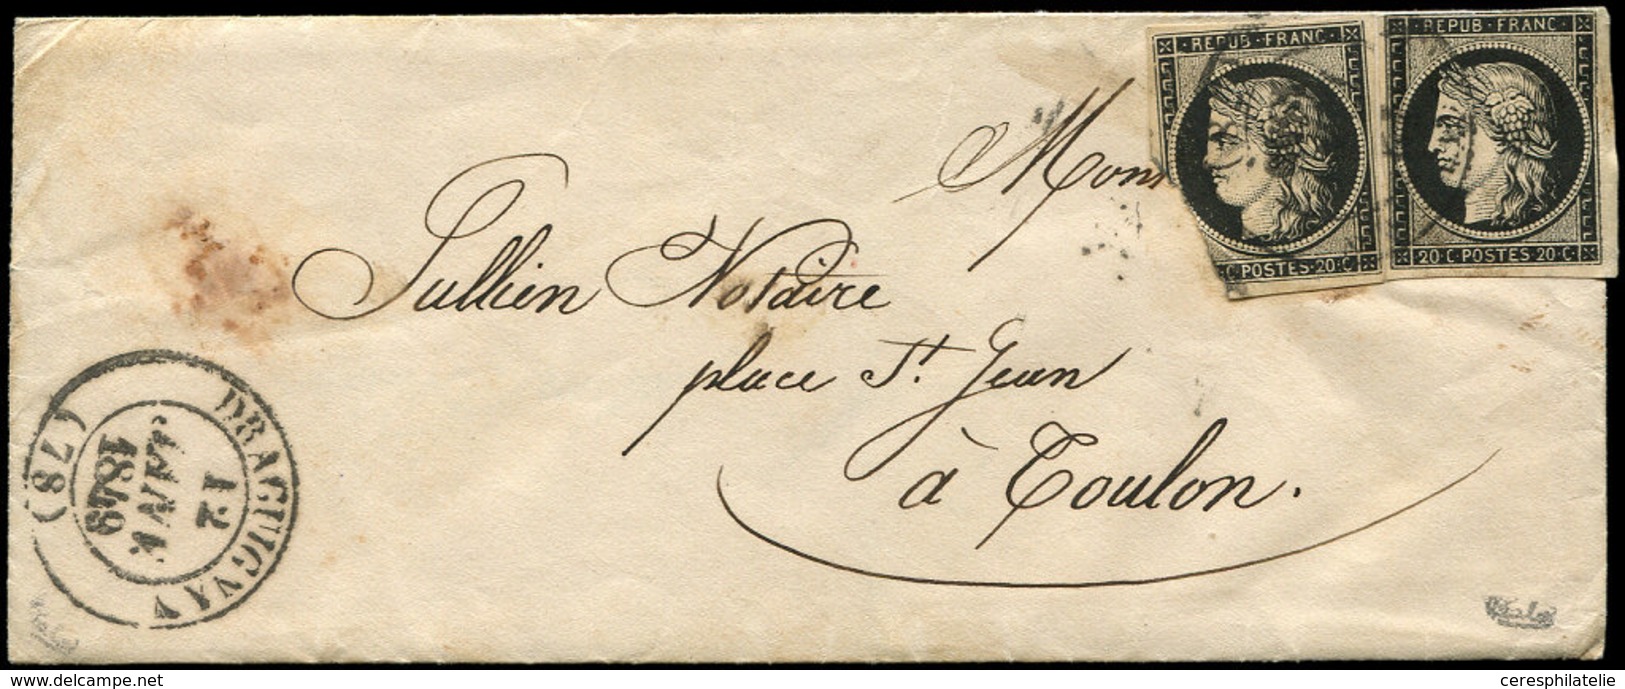 REPUB·FRANC·
REPUB·FRANC·
C·POSTES·20·C·
20·C·POSTES·20·C·
Mons
Jullien Notaire
place St. Jean
à Toulon.
DRAGUIGNAN
12
JANV.
1849
(78)
www.delcampe.net
ceresphilatelie